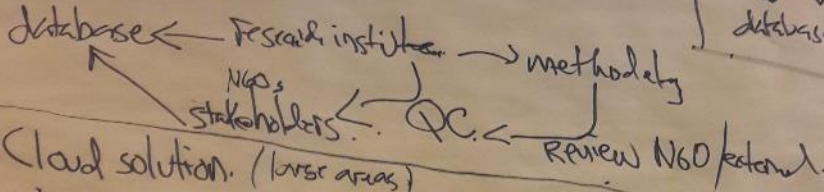 database
database research institute methodology
NGOs
stakeholders QC. Review NGO/external.
Cloud solution. (large areas)